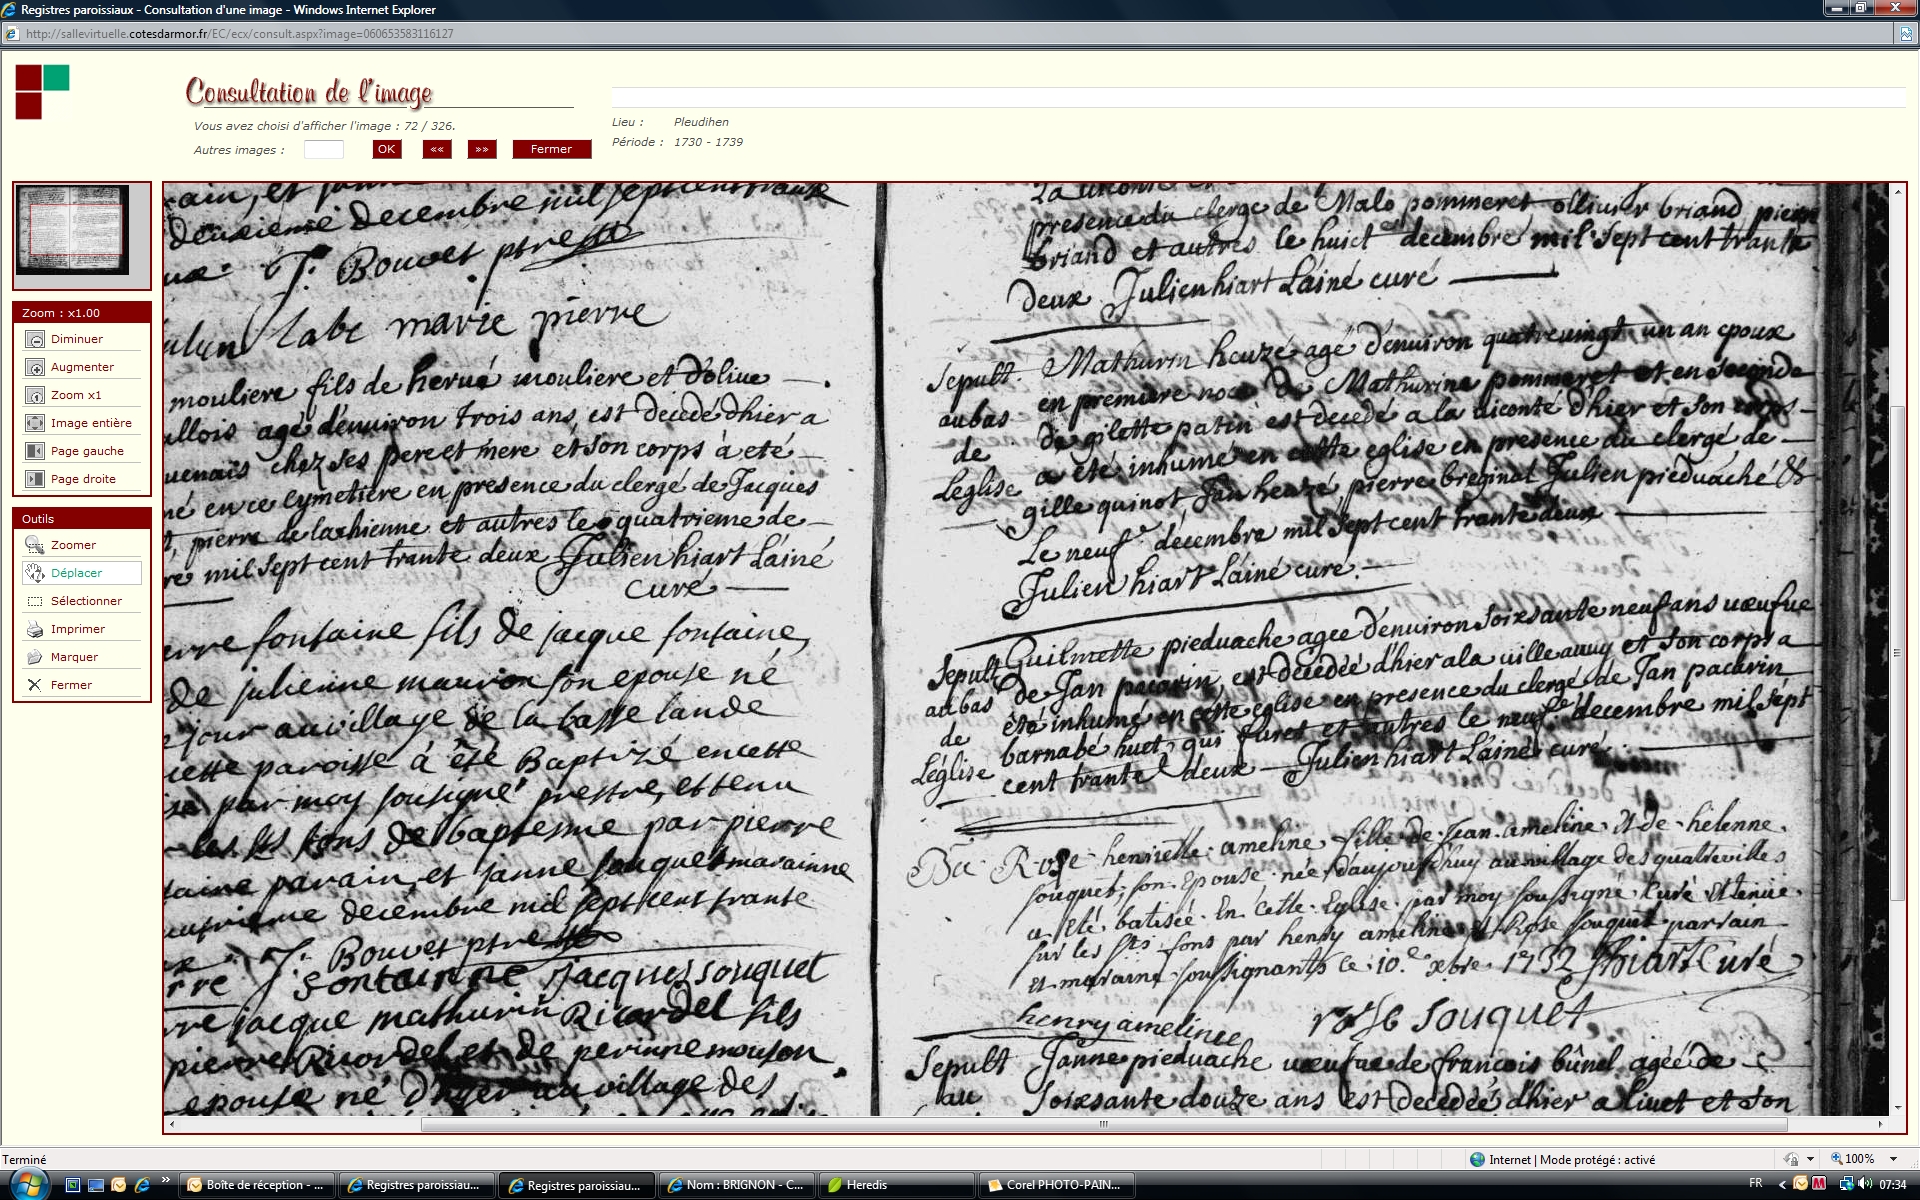 Registres paroissiaux - Consultation d'une image - Windows Internet Explorer
http://sallevirtuelle.cotesdarmor.fr/EC/ecx/consult.aspx?image=060653583116127
Consultation de l'image
Vous avez choisi d'afficher l'image : 72 / 326.
Autres images :
OK
««
»»
Fermer
Lieu : Pleudihen
Période : 1730 - 1739
Zoom : x1.00
Diminuer
Augmenter
Zoom x1
Image entière
Page gauche
Page droite
Outils
Zoomer
Déplacer
Sélectionner
Imprimer
Marquer
Fermer
deuxieme decembre mil sept cent trante
J. Bouvet ptre
labe marie pierre
mouliere fils de hervé mouliere et d'olive
allois agé d'environ trois ans, est decedé d'hier a
chez ses pere et mere et son corps à eté
né en ce cymetiere en presence du clergé de Jacques
pierre de lachienne et autres le quatrieme de
re mil sept cent trante deux Julien hiart Lainé
curé
erre fontaine fils de jacque fontaine,
de julienne mauron son epouse né
jour au village de la basse lande
cette paroisse à été Baptizé en cette
par moy sousigné prestre, et tenu
les sts fons de baptesme par pierre
taine parain, et janne souquet marainne
decembre mil sept cent trante
J. Bouvet ptre
rre fontainne jacques souquet
rre jacque mathurin Ricordel fils
pierre Ricordel et de perinne mouson
epouse né d'hyer au village des
La viconté
presence du clergé de Malo pommeret ollivier briand pierre
briand et autres le huict decembre mil sept cent trante
deux Julien hiart Lainé curé
Sepult. au bas de Léglise
Mathurin heuzé agé d'environ quatrevingt un an epoux
en premiere noce de Mathurine pommeret et en seconde
de gilette patin est decedé a la viconté d'hier et son corps
a eté inhumé en cette eglise en presence du clergé de
gille quinot, Jan heuzé, pierre breginal Julien pieduaché &
Le neufe decembre mil sept cent trante deux
Julien hiart Lainé curé.
Sepult au bas de Léglise
Guilmette pieduache agee d'environ soixsante neuf ans vœufue
de Jan pacarin, est décédée d'hier a la ville auuy et son corps a
été inhumé en cette eglise en presence du clergé de Jan pacarin
barnabé huet, qui furet et autres le neufe decembre mil sept
cent trante deux Julien hiart Lainé curé
Rose henriette ameline fille de Jean ameline et de helenne
souquet, son Epouse née d'aujourd'huy au village des quattre villes
a eté batisée En cette Eglise par moy soussigné Curé et tenüe
sur les sts fons par henry ameline et Rose souquet parrain
et maraine soussignants ce 10.e xbre 1732 JhiartCuré
henry ameline rose souquet
Sepult au
Janne pieduache vœufue de francois bûnel agéé de
soixsante douze ans est decedéé d'hier a livet et son
Terminé
Internet | Mode protégé : activé
100%
Boîte de réception - ...
Registres paroissiau...
Registres paroissiau...
Nom : BRIGNON - C...
Heredis
Corel PHOTO-PAIN...
FR
07:34